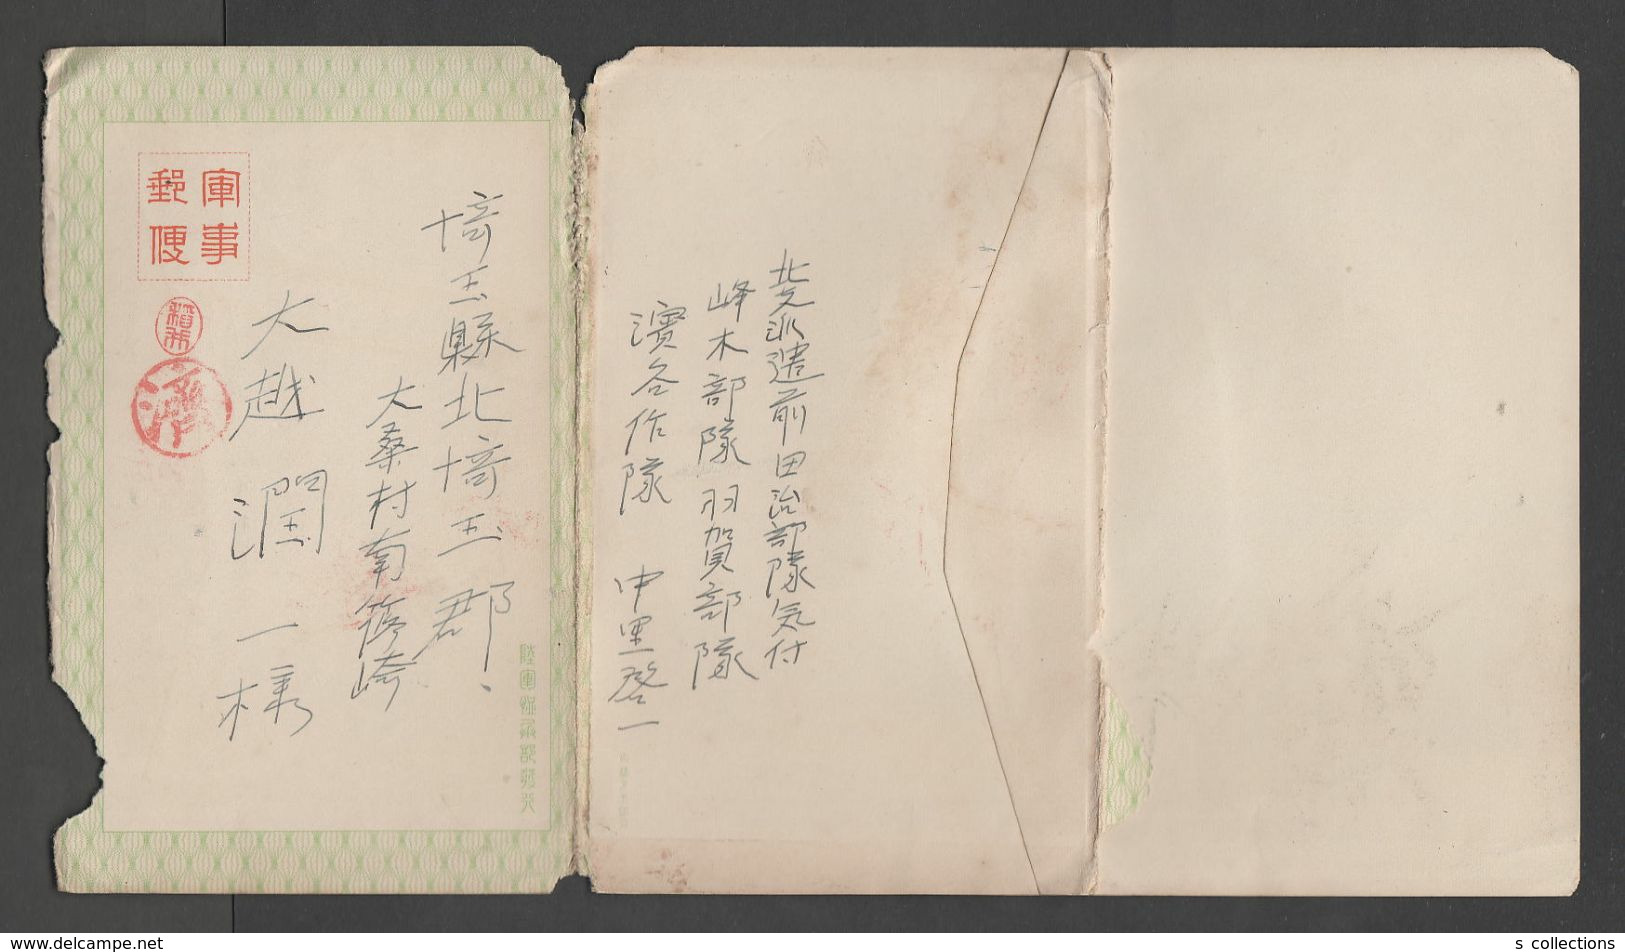 軍事
郵便
濟
埼玉縣北埼玉郡
大桑村南篠崎
大越潤一様
陸軍恤兵部發行
北支派遣前田治部隊気付
峰木部隊羽賀部隊
濱谷作隊 中里啓一
s collections